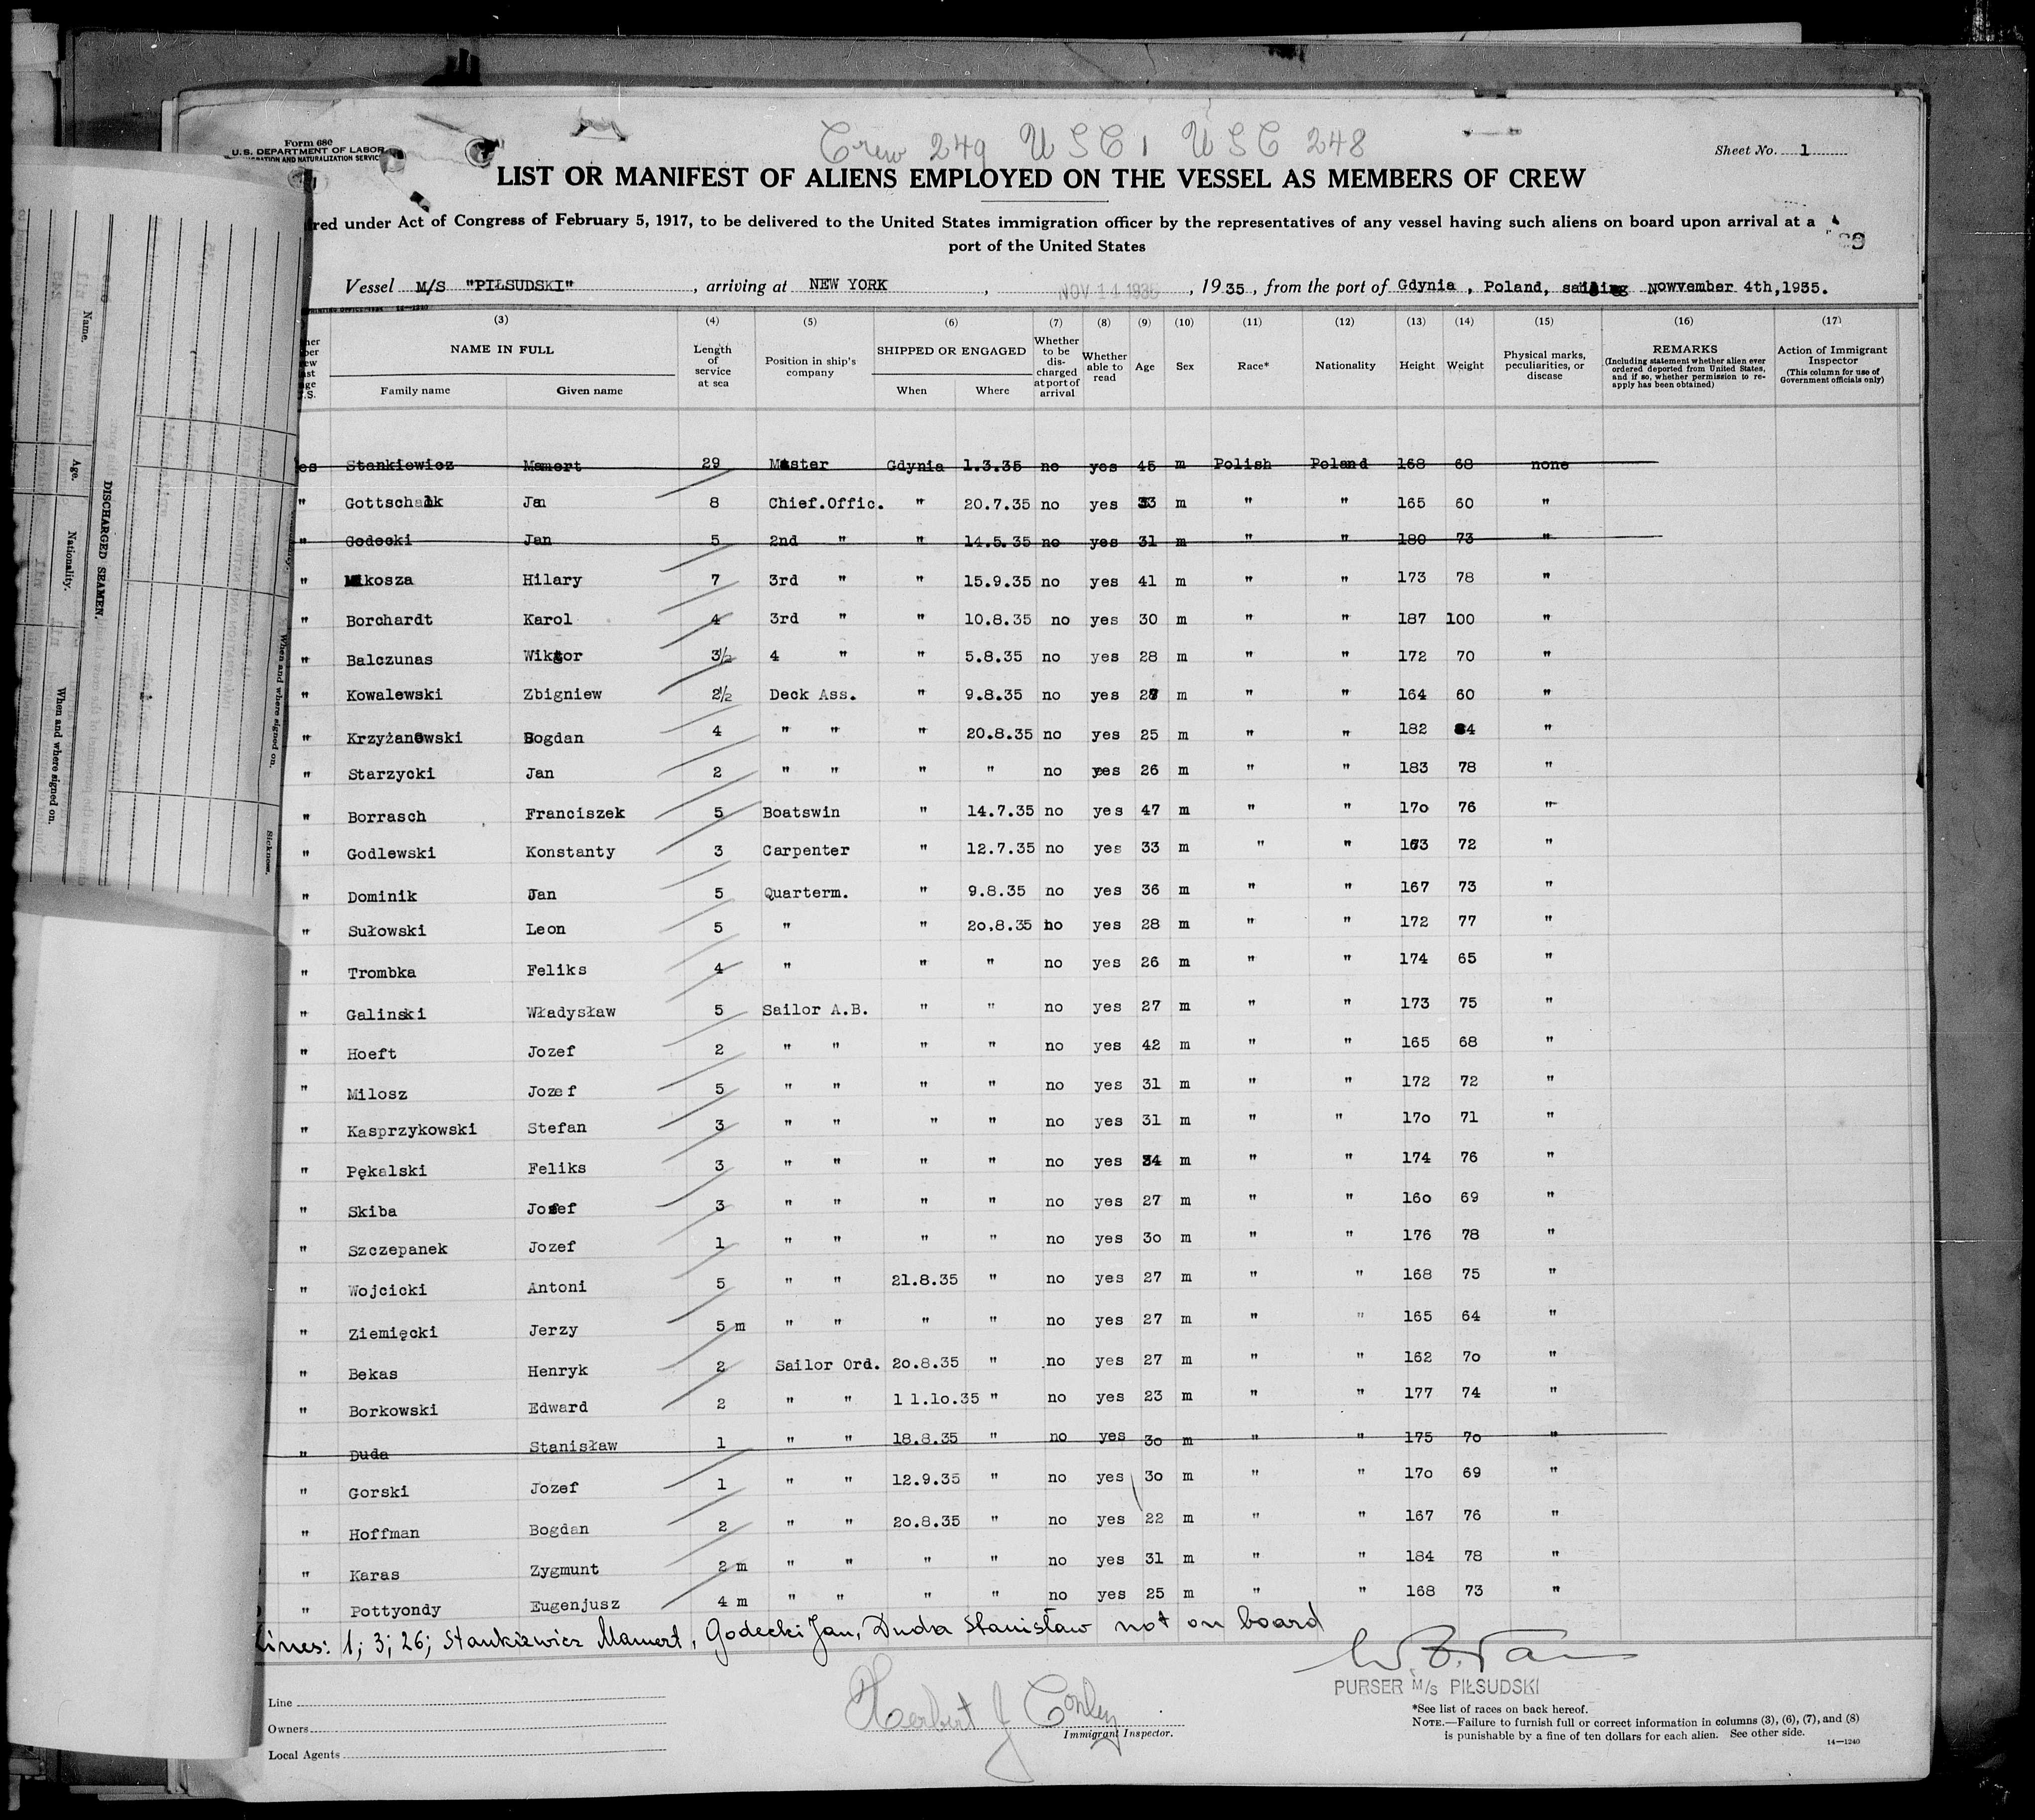 Form 680
U. S. DEPARTMENT OF LABOR
IMMIGRATION AND NATURALIZATION SERVICE
Crew 249 USC 1 USC 248
Sheet No. 1
LIST OR MANIFEST OF ALIENS EMPLOYED ON THE VESSEL AS MEMBERS OF CREW
ired under Act of Congress of February 5, 1917, to be delivered to the United States immigration officer by the representatives of any vessel having such aliens on board upon arrival at a
port of the United States
Vessel M/S "PIŁSUDSKI" , arriving at NEW YORK , NOV 14 1935 , 1935 , from the port of Gdynia , Poland, sailing Nowvember 4th,1935.
(3) (4) (5) (6) (7) (8) (9) (10) (11) (12) (13) (14) (15) (16) (17)
NAME IN FULL
Family name Given name
Length of service at sea
Position in ship's company
SHIPPED OR ENGAGED
When Where
Whether to be discharged at port of arrival
Whether able to read
Age
Sex
Race*
Nationality
Height
Weight
Physical marks, peculiarities, or disease
REMARKS
(Including statement whether alien ever ordered deported from United States, and if so, whether permission to re-apply has been obtained)
Action of Immigrant Inspector
(This column for use of Government officials only)
es Stankiewicz Mamert 29 Master Gdynia 1.3.35 no yes 45 m Polish Poland 168 68 none
" Gottschalk Jan 8 Chief.Offic. " 20.7.35 no yes 33 m " " 165 60 "
" Godecki Jan 5 2nd " " 14.5.35 no yes 31 m " " 180 73 "
" Mikosza Hilary 7 3rd " " 15.9.35 no yes 41 m " " 173 78 "
" Borchardt Karol 4 3rd " " 10.8.35 no yes 30 m " " 187 100 "
" Balczunas Wiktor 3½ 4 " " 5.8.35 no yes 28 m " " 172 70 "
" Kowalewski Zbigniew 2½ Deck Ass. " 9.8.35 no yes m " " 164 60 "
" Krzyżanowski Bogdan 4 " " " 20.8.35 no yes 25 m " " 182 84 "
" Starzycki Jan 2 " " " " no yes 26 m " " 183 78 "
" Borrasch Franciszek 5 Boatswin " 14.7.35 no yes 47 m " " 170 76 "
" Godlewski Konstanty 3 Carpenter " 12.7.35 no yes 33 m " " 72 "
" Dominik Jan 5 Quarterm. " 9.8.35 no yes 36 m " " 167 73 "
" Sułowski Leon 5 " " 20.8.35 no yes 28 m " " 172 77 "
" Trombka Feliks 4 " " " no yes 26 m " " 174 65 "
" Galinski Władysław 5 Sailor A.B. " " no yes 27 m " " 173 75 "
" Hoeft Jozef 2 " " " " no yes 42 m " " 165 68 "
" Milosz Jozef 5 " " " " no yes 31 m " " 172 72 "
" Kasprzykowski Stefan 3 " " " " no yes 31 m " " 170 71 "
" Pękalski Feliks 3 " " " " no yes 34 m " " 174 76 "
" Skiba Jozef 3 " " " " no yes 27 m " " 160 69 "
" Szczepanek Jozef 1 " " " " no yes 30 m " " 176 78 "
" Wojcicki Antoni 5 " " 21.8.35 " no yes 27 m " " 168 75 "
" Ziemięcki Jerzy 5 m " " " " no yes 27 m " " 165 64 "
" Bekas Henryk 2 Sailor Ord. 20.8.35 " no yes 27 m " " 162 70 "
" Borkowski Edward 2 " " 1 1.10.35 " no yes 23 m " " 177 74 "
" Duda Stanisław 1 " " 18.8.35 " no yes 30 m " " 175 70 "
" Gorski Jozef 1 " " 12.9.35 " no yes 30 m " " 170 69 "
" Hoffman Bogdan 2 " " 20.8.35 " no yes 22 m " " 167 76 "
" Karas Zygmunt 2 m " " " " no yes 31 m " " 184 78 "
" Pottyondy Eugenjusz 4 m " " " " no yes 25 m " " 168 73 "
Lines: 1; 3; 26; Stankiewicz Mamert, Godecki Jan, Duda Stanisław not on board
PURSER M/s PIŁSUDSKI
Line
Owners
Local Agents
Herbert J Conley
Immigrant Inspector.
*See list of races on back hereof.
NOTE.—Failure to furnish full or correct information in columns (3), (6), (7), and (8)
is punishable by a fine of ten dollars for each alien. See other side.
14—1240
DISCHARGED SEAMEN.
Name.
Age.
Nationality.
When and where signed on.
When and where signed on.
Sickness.